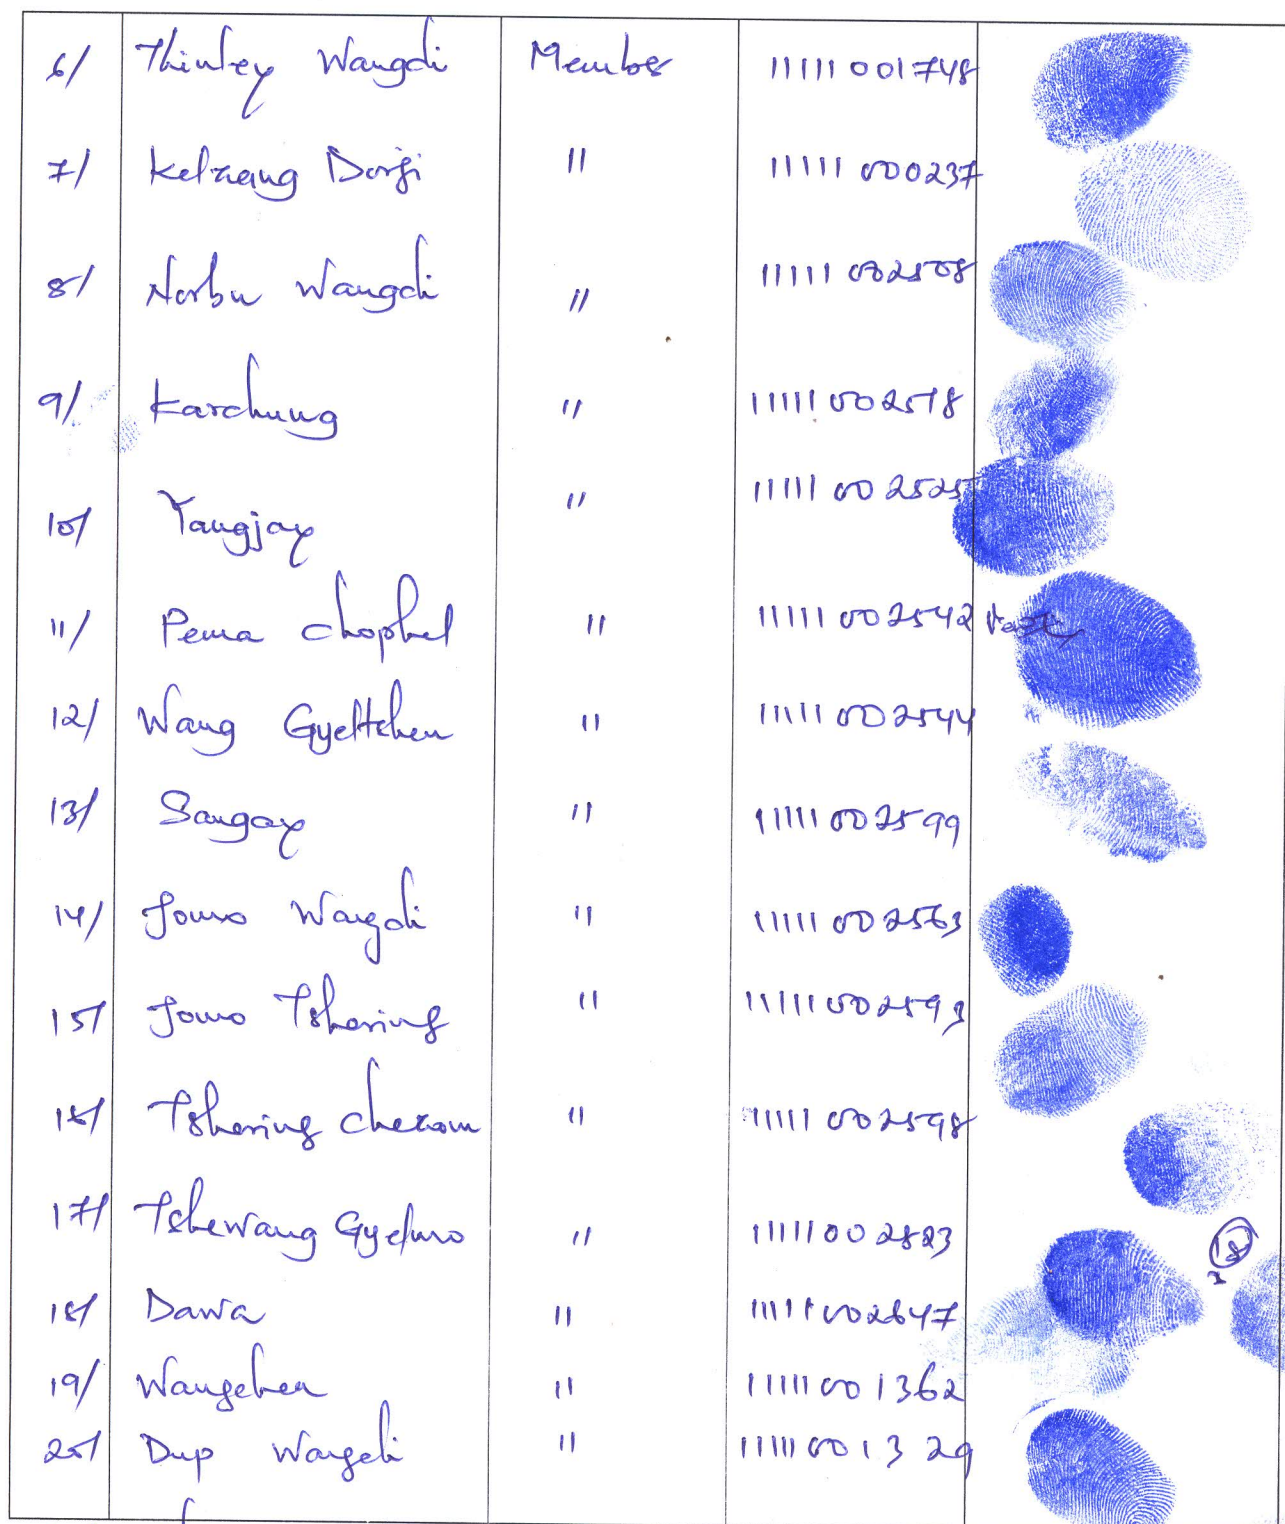 6/ Thinley Wangdi Member 11111001748
7/ Kelzang Dorji " 11111000237
8/ Norbu Wangdi " 11111002508
9/ Karchung " 11111002518
10/ Yangjay " 11111002525
11/ Pema Chophel " 11111002542
12/ Wang Gyeltshen " 11111002544
13/ Sangay " 11111002599
14/ Jomo Wangdi " 11111002563
15/ Jomo Tshering " 11111002593
16/ Tshering Chezom " 11111002598
17/ Tshewang Gyelmo " 11111002823
18/ Dawa " 11111002647
19/ Wangchen " 11111001362
20/ Dup Wangdi " 11111001329